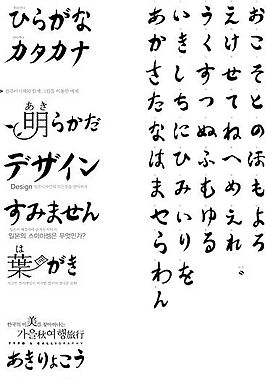 ひらがな
カタカナ
あき
明らかだ
デザイン
Design
すみません
일본의 스미마셍은 무엇인가?
は
葉がき
한국의 미美를 찾아떠나는
가을秋여행旅行
TYPO & CALLIGRAPHY
あきりょこう
おこそとのほもよろ
えけせてねへめえれ。
うくすつぬふむゆる
いきしちにひみいりを
あかさたなはまやらわん